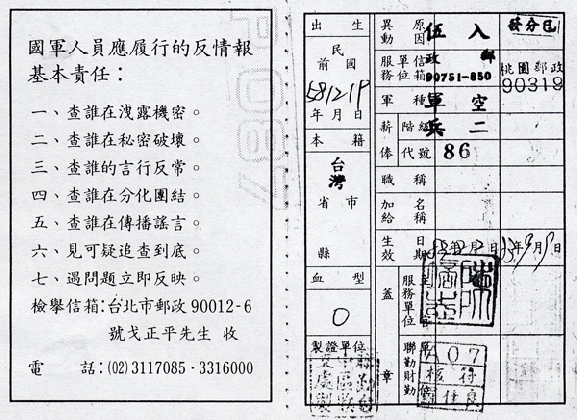 國軍人員應履行的反情報
基本責任：
一、查誰在洩露機密。
二、查誰在秘密破壞。
三、查誰的言行反常。
四、查誰在分化團結。
五、查誰在傳播謠言。
六、見可疑追查到底。
七、遇問題立即反映。
檢舉信箱：台北市郵政90012-6
號戈正平先生 收
電 話：(02)3117085·3316000
出生
民國
前
年月日
本籍
台灣
省市
縣
血型
O
製證單位
異動
原因
入伍
服務
單位
信箱
郵政
90751-850
桃園郵政
90318
軍種
空軍
薪俸
階級
二兵
代號
86
職稱
加給
名稱
生效
日期
蓋章
服務單位
聯勤財勤單位
A07